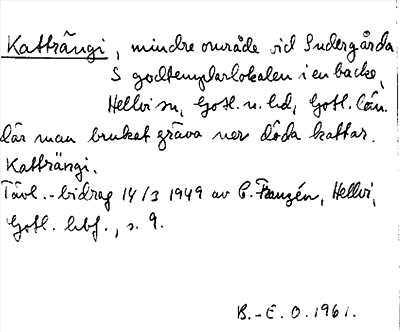 Katträngi, mindre område vid Sudergårda
S godtemplarlokalen i en backe,
Hellvi sn, Gotl. n. hd, Gotl. län.
där man brukat gräva ner döda kattar.
Katträngi.
Tävl.-bidrag 14/3 1949 av C. Franzén, Hellvi,
Gotl. hbf., s. 9.
B.-E. O. 1961.